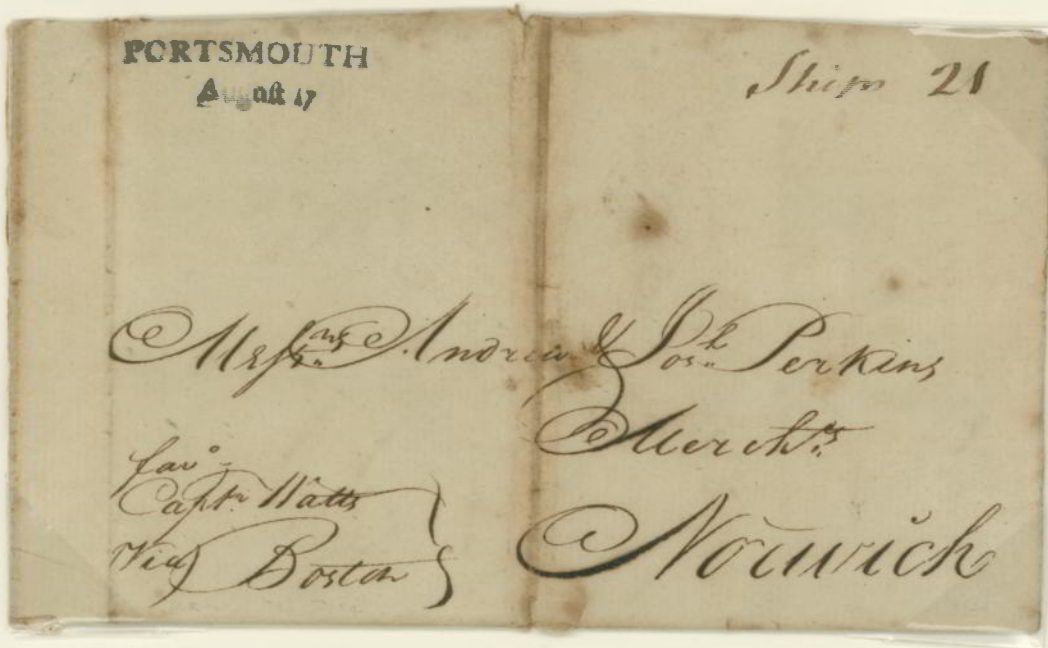 PORTSMOUTH
August 17
Ship 21
Messrs Andrew & Josh Perkins
Merchts
Norwich
favo
Capt Watts
Via Boston